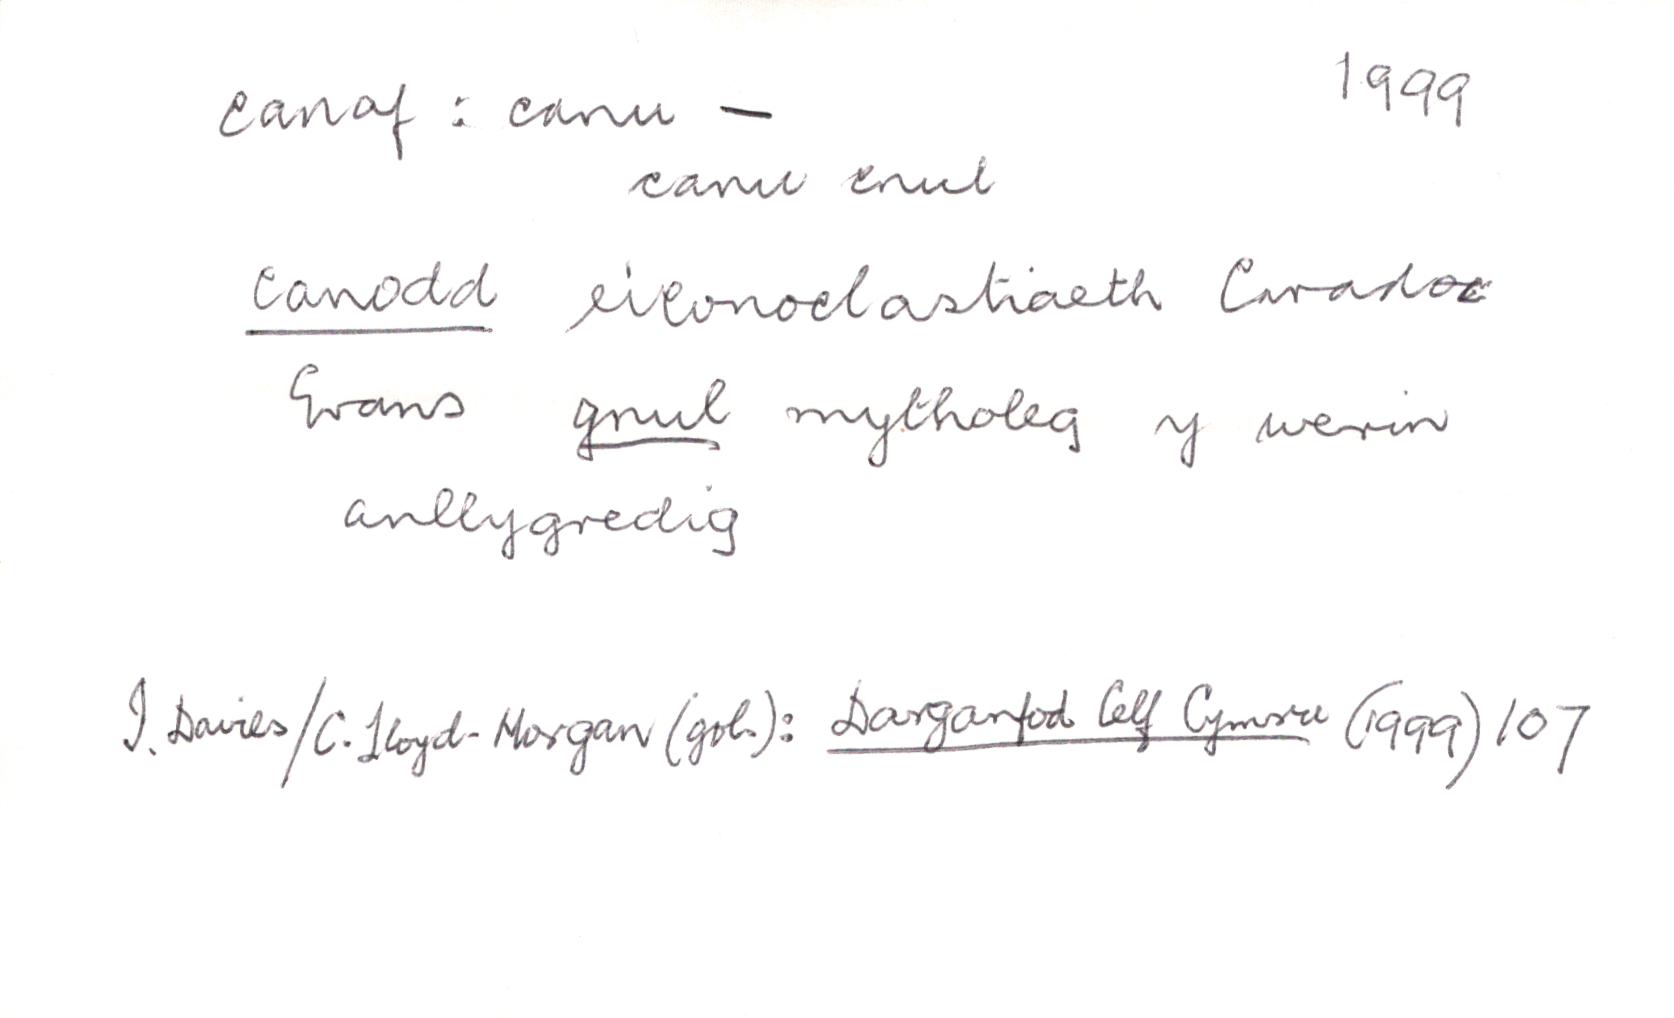 canaf : canu — 1999
canu cnul
canodd eiconoclastiaeth Caradoc
Evans gnul mytholeg y werin
anllygredig
I. Davies/C. Lloyd-Morgan (gol.): Darganfod Celf Cymru (1999) 107